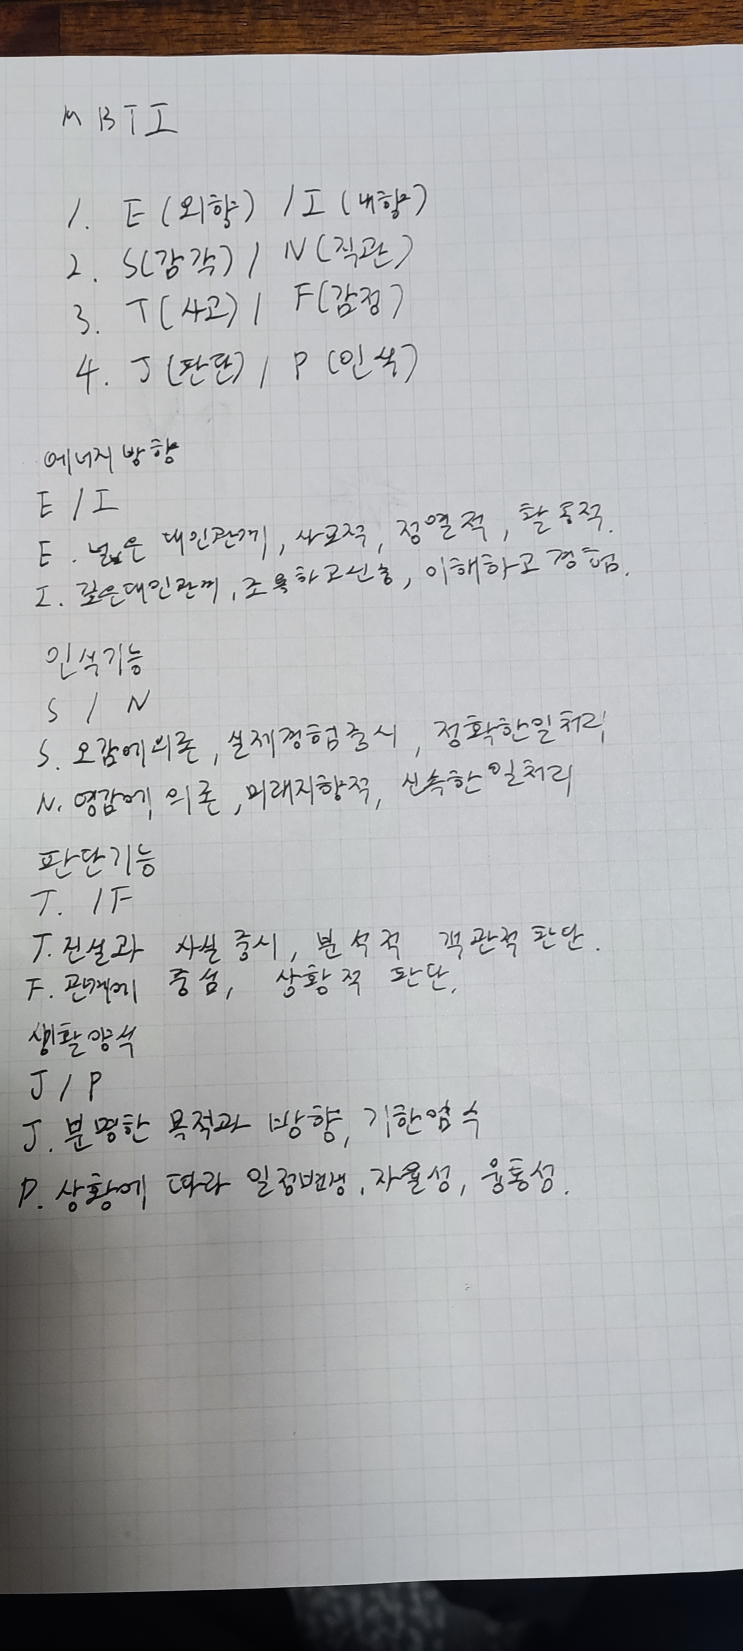 MBTI
1. E (외향) / I (내향)
2. S(감각) / N(직관)
3. T(사고) / F(감정)
4. J(판단) / P(인식)
에너지방향
E / I
E. 넓은 대인관계, 사교적, 정열적, 활동적.
I. 깊은대인관계, 조용하고신중, 이해하고 경험.
인식기능
S / N
S. 오감에의존, 실제경험중시, 정확한일처리
N. 영감에 의존, 미래지향적, 신속한일처리
판단기능
T. / F
T. 진실과 사실 중시, 분석적 객관적 판단.
F. 관계에 중심, 상황적 판단.
생활양식
J / P
J. 분명한 목적과 방향, 기한엄수
P. 상황에 따라 일정변경, 자율성, 융통성.